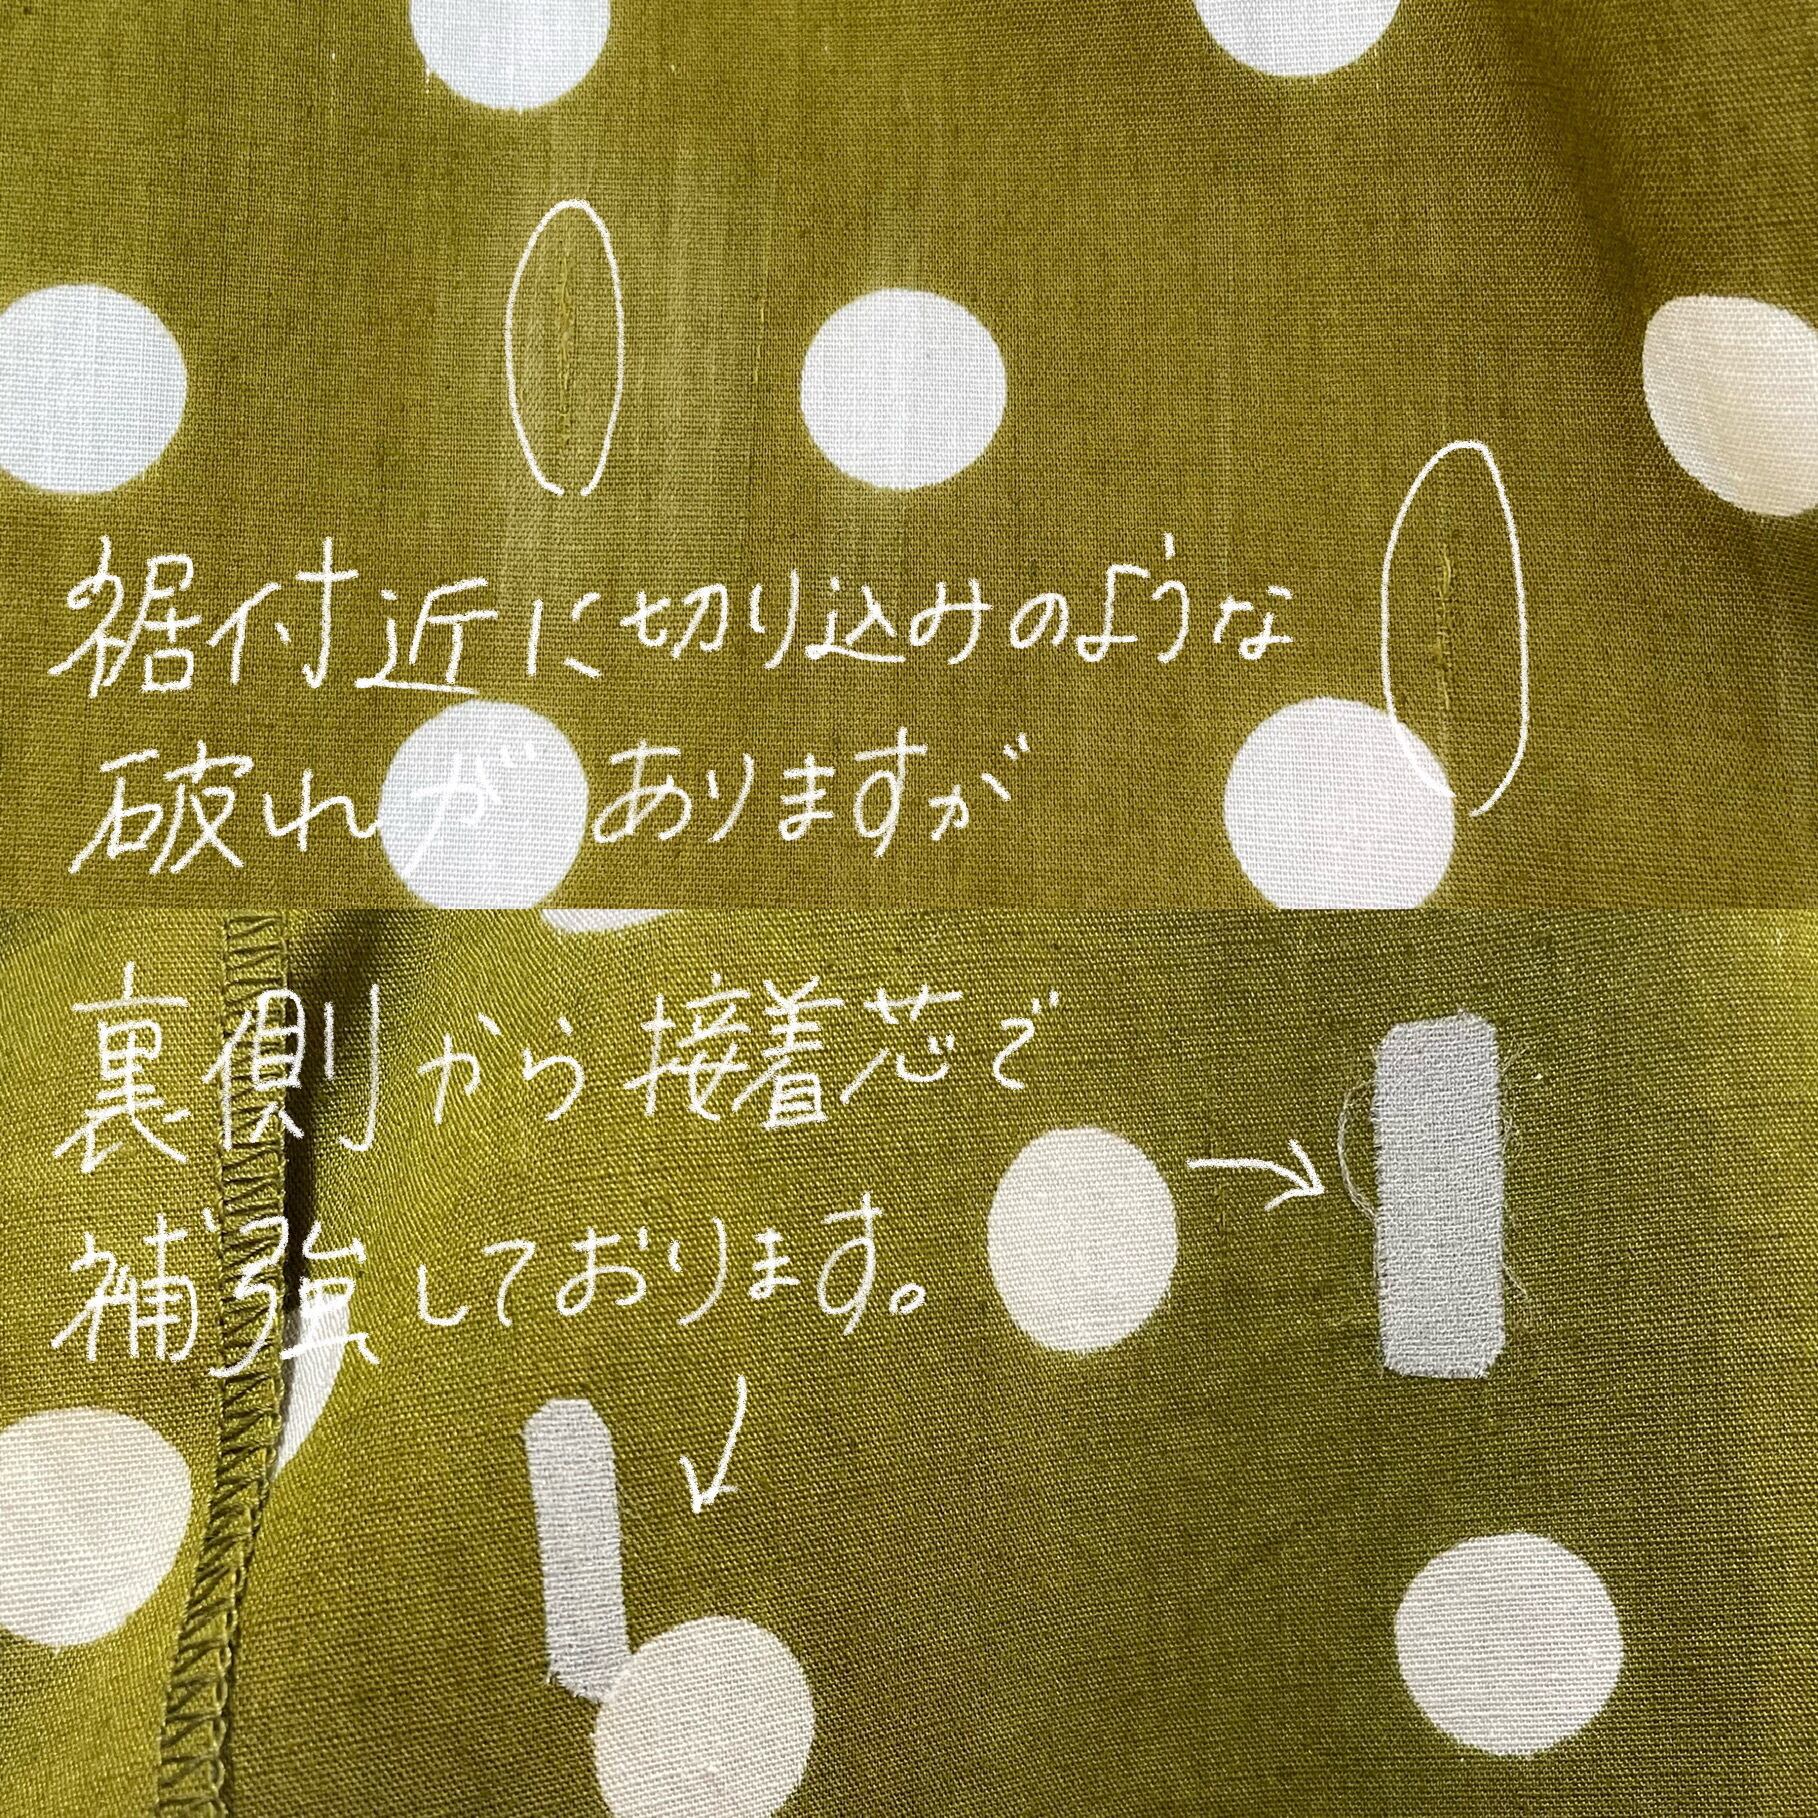 裾付近に切り込みのような
破れがありますが
裏側から接着芯で
補強しております。